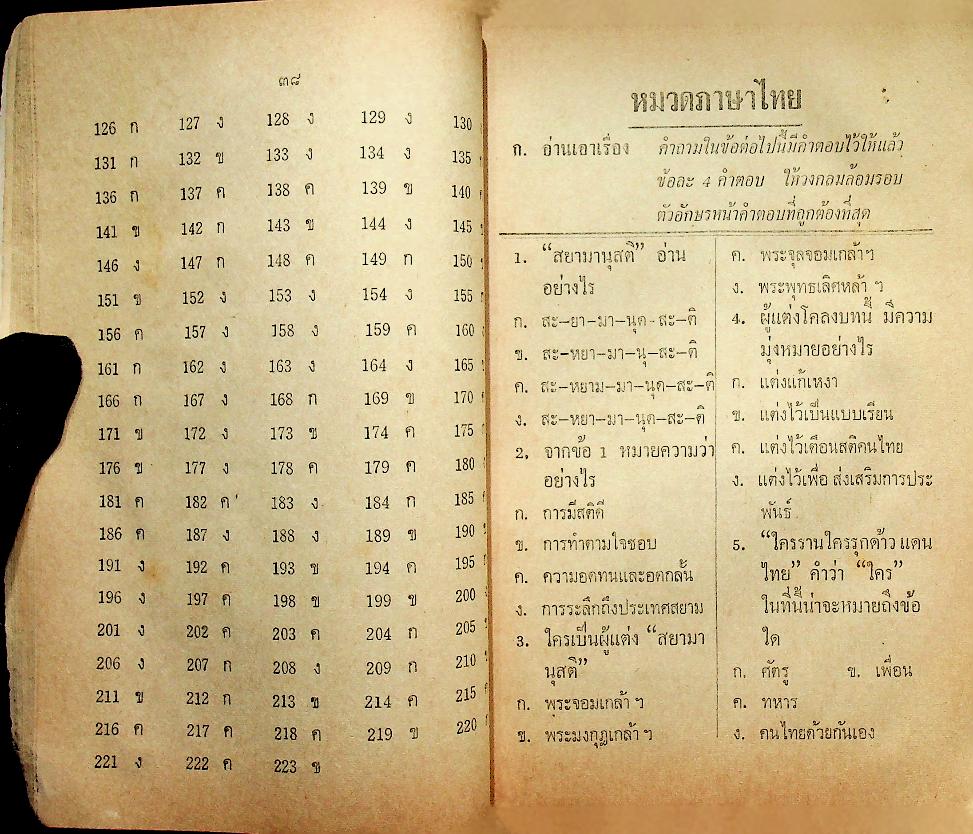 ๓๘
126 ก 127 ง 128 ง 129 ง 130
131 ก 132 ข 133 ง 134 ง 135
136 ก 137 ค 138 ค 139 ข 140
141 ข 142 ก 143 ข 144 ง 145
146 ง 147 ก 148 ค 149 ก 150
151 ข 152 ง 153 ง 154 ง 155
156 ค 157 ง 158 ง 159 ค 160
161 ก 162 ง 163 ง 164 ง 165
166 ก 167 ง 168 ก 169 ข 170
171 ข 172 ง 173 ข 174 ค 175
176 ข 177 ง 178 ค 179 ค 180
181 ค 182 ค 183 ง 184 ก 185
186 ค 187 ง 188 ง 189 ข 190
191 ง 192 ค 193 ข 194 ค 195
196 ง 197 ค 198 ข 199 ข 200
201 ง 202 ค 203 ค 204 ก 205
206 ง 207 ก 208 ง 209 ก 210
211 ข 212 ก 213 ข 214 ค 215
216 ค 217 ค 218 ค 219 ข 220
221 ง 222 ค 223 ข
หมวดภาษาไทย
ก. อ่านเอาเรื่อง คำถามในข้อต่อไปนี้มีคำตอบไว้ให้แล้ว
ข้อละ 4 คำตอบ ให้วงกลมล้อมรอบ
ตัวอักษรหน้าคำตอบที่ถูกต้องที่สุด
1. “สยามานุสติ” อ่าน
อย่างไร
ก. สะ-ยา-มา-นุค-สะ-ติ
ข. สะ-หยา-มา-นุ-สะ-ติ
ค. สะ-หยาม-มา-นุด-สะ-ติ
ง. สะ-หยา-มา-นุด-สะ-ติ
2. จากข้อ 1 หมายความว่า
อย่างไร
ก. การมีสติดี
ข. การทำตามใจชอบ
ค. ความอดทนและอดกลั้น
ง. การระลึกถึงประเทศสยาม
3. ใครเป็นผู้แต่ง “สยามา
นุสติ”
ก. พระจอมเกล้า ฯ
ข. พระมงกุฎเกล้า ฯ
ค. พระจุลจอมเกล้าฯ
ง. พระพุทธเลิศหล้า ฯ
4. ผู้แต่งโคลงบทนี้ มีความ
มุ่งหมายอย่างไร
ก. แต่งแก้เหงา
ข. แต่งไว้เป็นแบบเรียน
ค. แต่งไว้เตือนสติคนไทย
ง. แต่งไว้เพื่อ ส่งเสริมการประ
พันธ์
5. “ใครรานใครรุกด้าว แดน
ไทย” คำว่า “ใคร”
ในที่นี้น่าจะหมายถึงข้อ
ใด
ก. ศัตรู ข. เพื่อน
ค. ทหาร
ง. คนไทยด้วยกันเอง